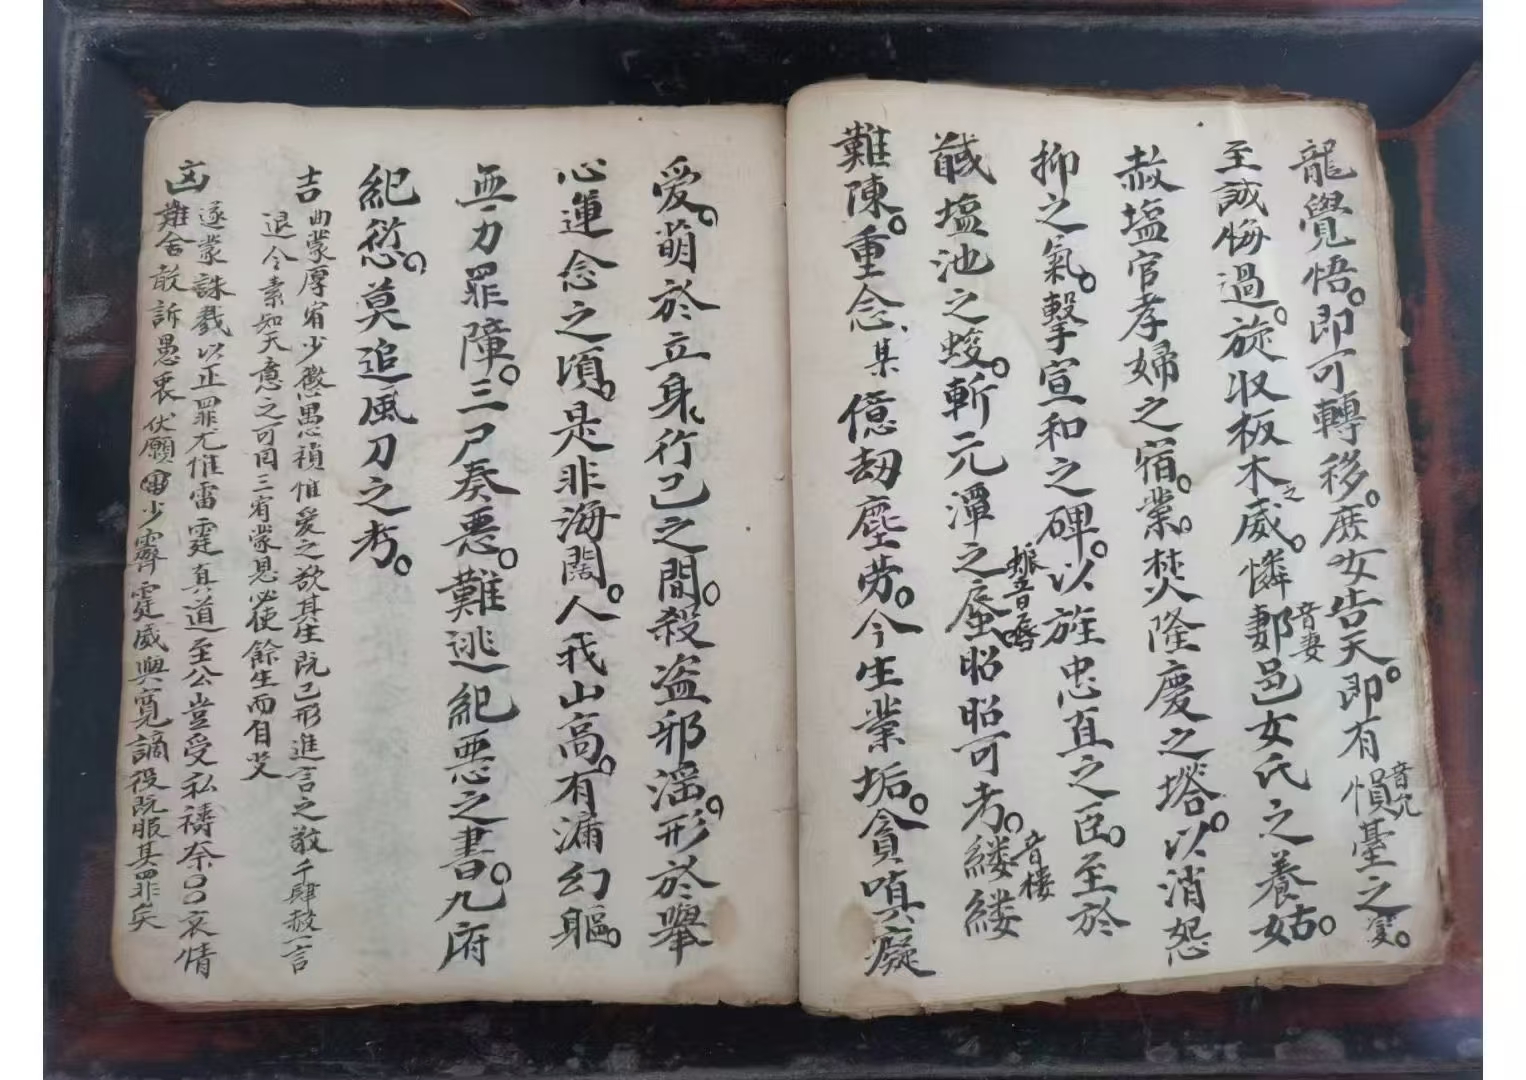 龍覺悟。即可轉移。庶女告天。即有愪音允臺之变。
至誠悔過。旋收板木之威。憐鄴音妻邑女氏之養姑。
赦塩官孝婦之宿業。焚隆慶之塔。以消怨
抑之氣。擊宣和之碑。以旌忠直之臣。至於
馘塩池之蛟。斬元潭之蜃振音唇昭昭可考。縷音楼縷
難陳。重念、某億劫塵劳。今生業垢。貪嗔癡
爱。萌於立身行己之間。殺盗邪淫。形於舉
心運念之頃。是非海闊。人我山高。有漏幻軀。
無力罪障。三尸奏悪。難逃紀悪之書。九府
紀愆。莫追風刀之考。
吉曲蒙厚宥少懲愚禎惟爱之欲其生既已形進言之敢千肆赦言
退令素知天意之可囬三宥蒙恩必使餘生而自艾
遂蒙誅戮以正罪尤惟雷霆真道至公豈受私禱奈〇〇哀情
凶難舍敢訴愚衷伏願雷少霽霆威興寛謫役既服其罪矣